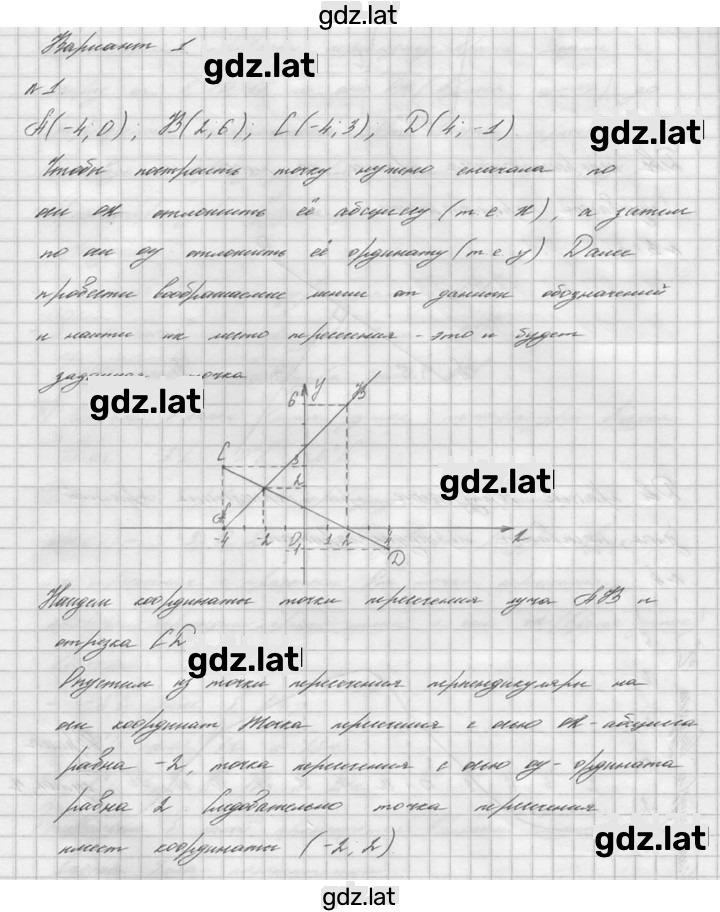 gdz.latl
Вариант 1
gdz.latl
№1
A(-4; 0); B(2; 6); C(-4; 3); D(4; -1)
gdz.latl
Чтобы построить точку нужно сначала по
оси ox отложить её абсциссу (т.е. x), а затем
по оси oy отложить её ординату (т.е. y) Далее
провести воображаемые линии от данных обозначений
и найти их место пересечения - это и будет
точка
gdz.latl
6 y B
C 3
gdz.latl
2
A -4 -2 0 1 2 4 x
-1 D
Найдем координаты точки пересечения луча AB и
отрезка CD
gdz.latl
Опустим из точки пересечения перпендикуляры на
оси координат Точка пересечения с осью ox - абсцисса
равна -2, точка пересечения с осью oy - ордината
равна 2 Следовательно точка пересечения
имеет координаты (-2; 2)
gdz.latl
gdz.latl